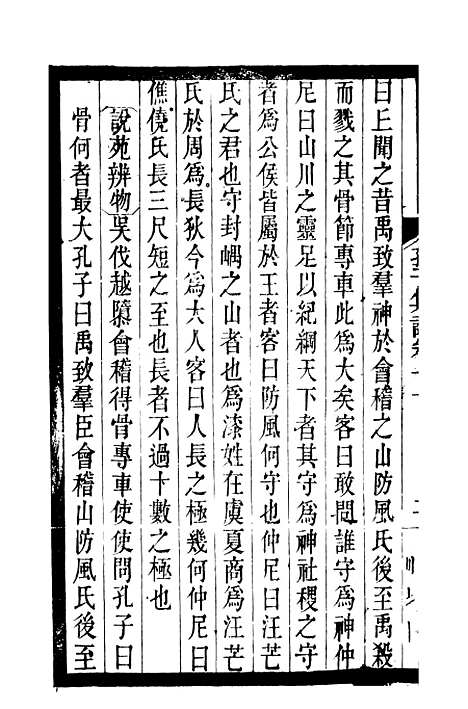 曰丘聞之昔禹致羣神於會稽之山防風氏後至禹殺
而戮之其骨節專車此為大矣客曰敢問誰守為神仲
尼曰山川之靈足以紀綱天下者其守為神社稷之守
者為公侯皆屬於王者客曰防風何守也仲尼曰汪芒
氏之君也守封嵎之山者也為漆姓在虞夏商為汪芒
氏於周為長狄今為大人客曰人長之極幾何仲尼曰
僬僥氏長三尺短之至也長者不過十數之極也
說苑辨物吳伐越隳會稽得骨專車使使問孔子曰
骨何者最大孔子曰禹致羣臣會稽山防風氏後至